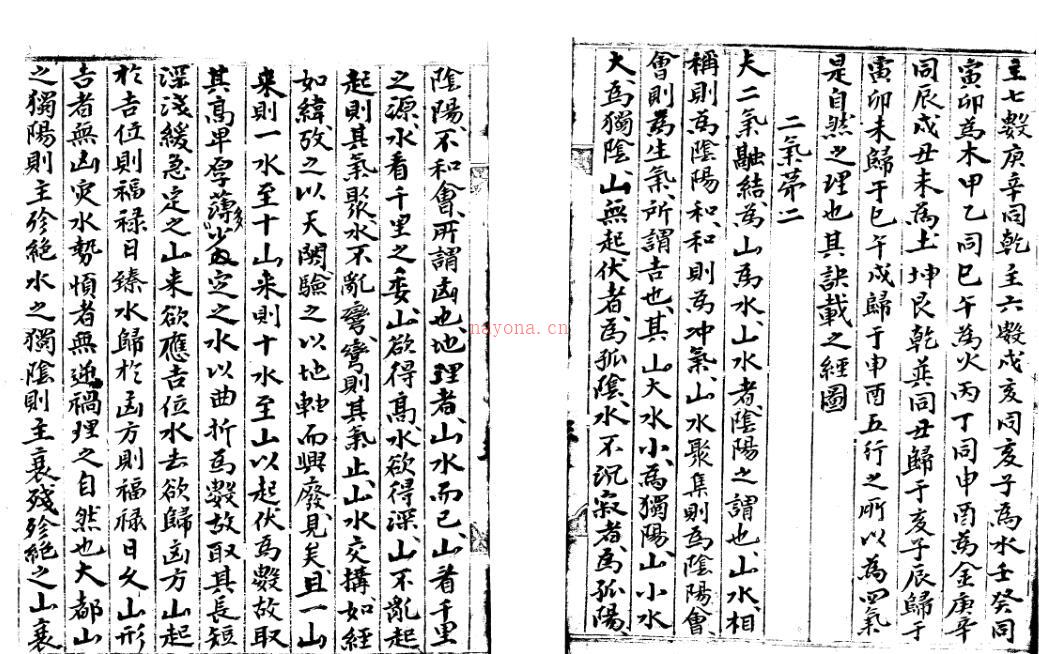 主七數庚辛同乾主六數戌亥同亥子為水壬癸同
寅卯為木甲乙同巳午為火丙丁同申酉為金庚辛
同辰戌丑未為土坤艮乾巽同丑歸于亥子辰歸于
寅卯未歸于巳午戌歸于申酉五行之所以為四氣
是自然之理也其訣載之經圖
二氣第二
夫二氣融結為山為水山水者陰陽之謂也山水相
稱則為陰陽和和則為冲氣山水聚集則為陰陽會
會則為生氣所謂吉也其山大水小為獨陽山小水
大為獨陰山無起伏者為孤陰水不沉寂者為孤陽
陰陽不和會所謂凶也地理者山水而已山看千里
之源水看千里之委山欲得髙水欲得深山不亂起
起則其氣聚水不亂彎彎則其氣止山水交搆如經
如緯攷之以天關驗之以地軸而興廢見矣且一山
来則一水至十山来則十水至山以起伏為數故取
其髙卑厚薄多少定之水以曲折為數故取其長短
深淺緩急定之山来欲應吉位水去欲歸凶方山起
於吉位則福禄日臻水歸於凶方則福禄日久山形
吉者無凶灾水勢慎者無逆禍理之自然也大都山
之獨陽則主殄絶水之獨陰則主衰殘殄絶之山衰
nayona.cn